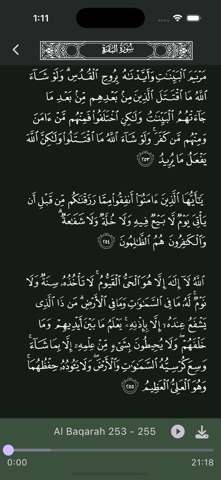 1:11
سُورَةُ البَقَرَةِ
مَرْيَمَ ٱلْبَيِّنَٰتِ وَأَيَّدْنَٰهُ بِرُوحِ ٱلْقُدُسِ وَلَوْ شَآءَ
ٱللَّهُ مَا ٱقْتَتَلَ ٱلَّذِينَ مِنۢ بَعْدِهِم مِّنۢ بَعْدِ مَا
جَآءَتْهُمُ ٱلْبَيِّنَٰتُ وَلَٰكِنِ ٱخْتَلَفُوا۟ فَمِنْهُم مَّنْ ءَامَنَ
وَمِنْهُم مَّن كَفَرَ وَلَوْ شَآءَ ٱللَّهُ مَا ٱقْتَتَلُوا۟ وَلَٰكِنَّ ٱللَّهَ
يَفْعَلُ مَا يُرِيدُ ٢٥٣
يَٰٓأَيُّهَا ٱلَّذِينَ ءَامَنُوٓا۟ أَنفِقُوا۟ مِمَّا رَزَقْنَٰكُم مِّن قَبْلِ أَن
يَأْتِىَ يَوْمٌ لَّا بَيْعٌ فِيهِ وَلَا خُلَّةٌ وَلَا شَفَٰعَةٌ
وَٱلْكَٰفِرُونَ هُمُ ٱلظَّٰلِمُونَ ٢٥٤
ٱللَّهُ لَآ إِلَٰهَ إِلَّا هُوَ ٱلْحَىُّ ٱلْقَيُّومُ لَا تَأْخُذُهُۥ سِنَةٌ وَلَا
نَوْمٌ لَّهُۥ مَا فِى ٱلسَّمَٰوَٰتِ وَمَا فِى ٱلْأَرْضِ مَن ذَا ٱلَّذِى
يَشْفَعُ عِندَهُۥٓ إِلَّا بِإِذْنِهِۦ يَعْلَمُ مَا بَيْنَ أَيْدِيهِمْ وَمَا
خَلْفَهُمْ وَلَا يُحِيطُونَ بِشَىْءٍ مِّنْ عِلْمِهِۦٓ إِلَّا بِمَا شَآءَ
وَسِعَ كُرْسِيُّهُ ٱلسَّمَٰوَٰتِ وَٱلْأَرْضَ وَلَا يَـُٔودُهُۥ حِفْظُهُمَا
وَهُوَ ٱلْعَلِىُّ ٱلْعَظِيمُ ٢٥٥
Al Baqarah 253 - 255
0:00
21:18